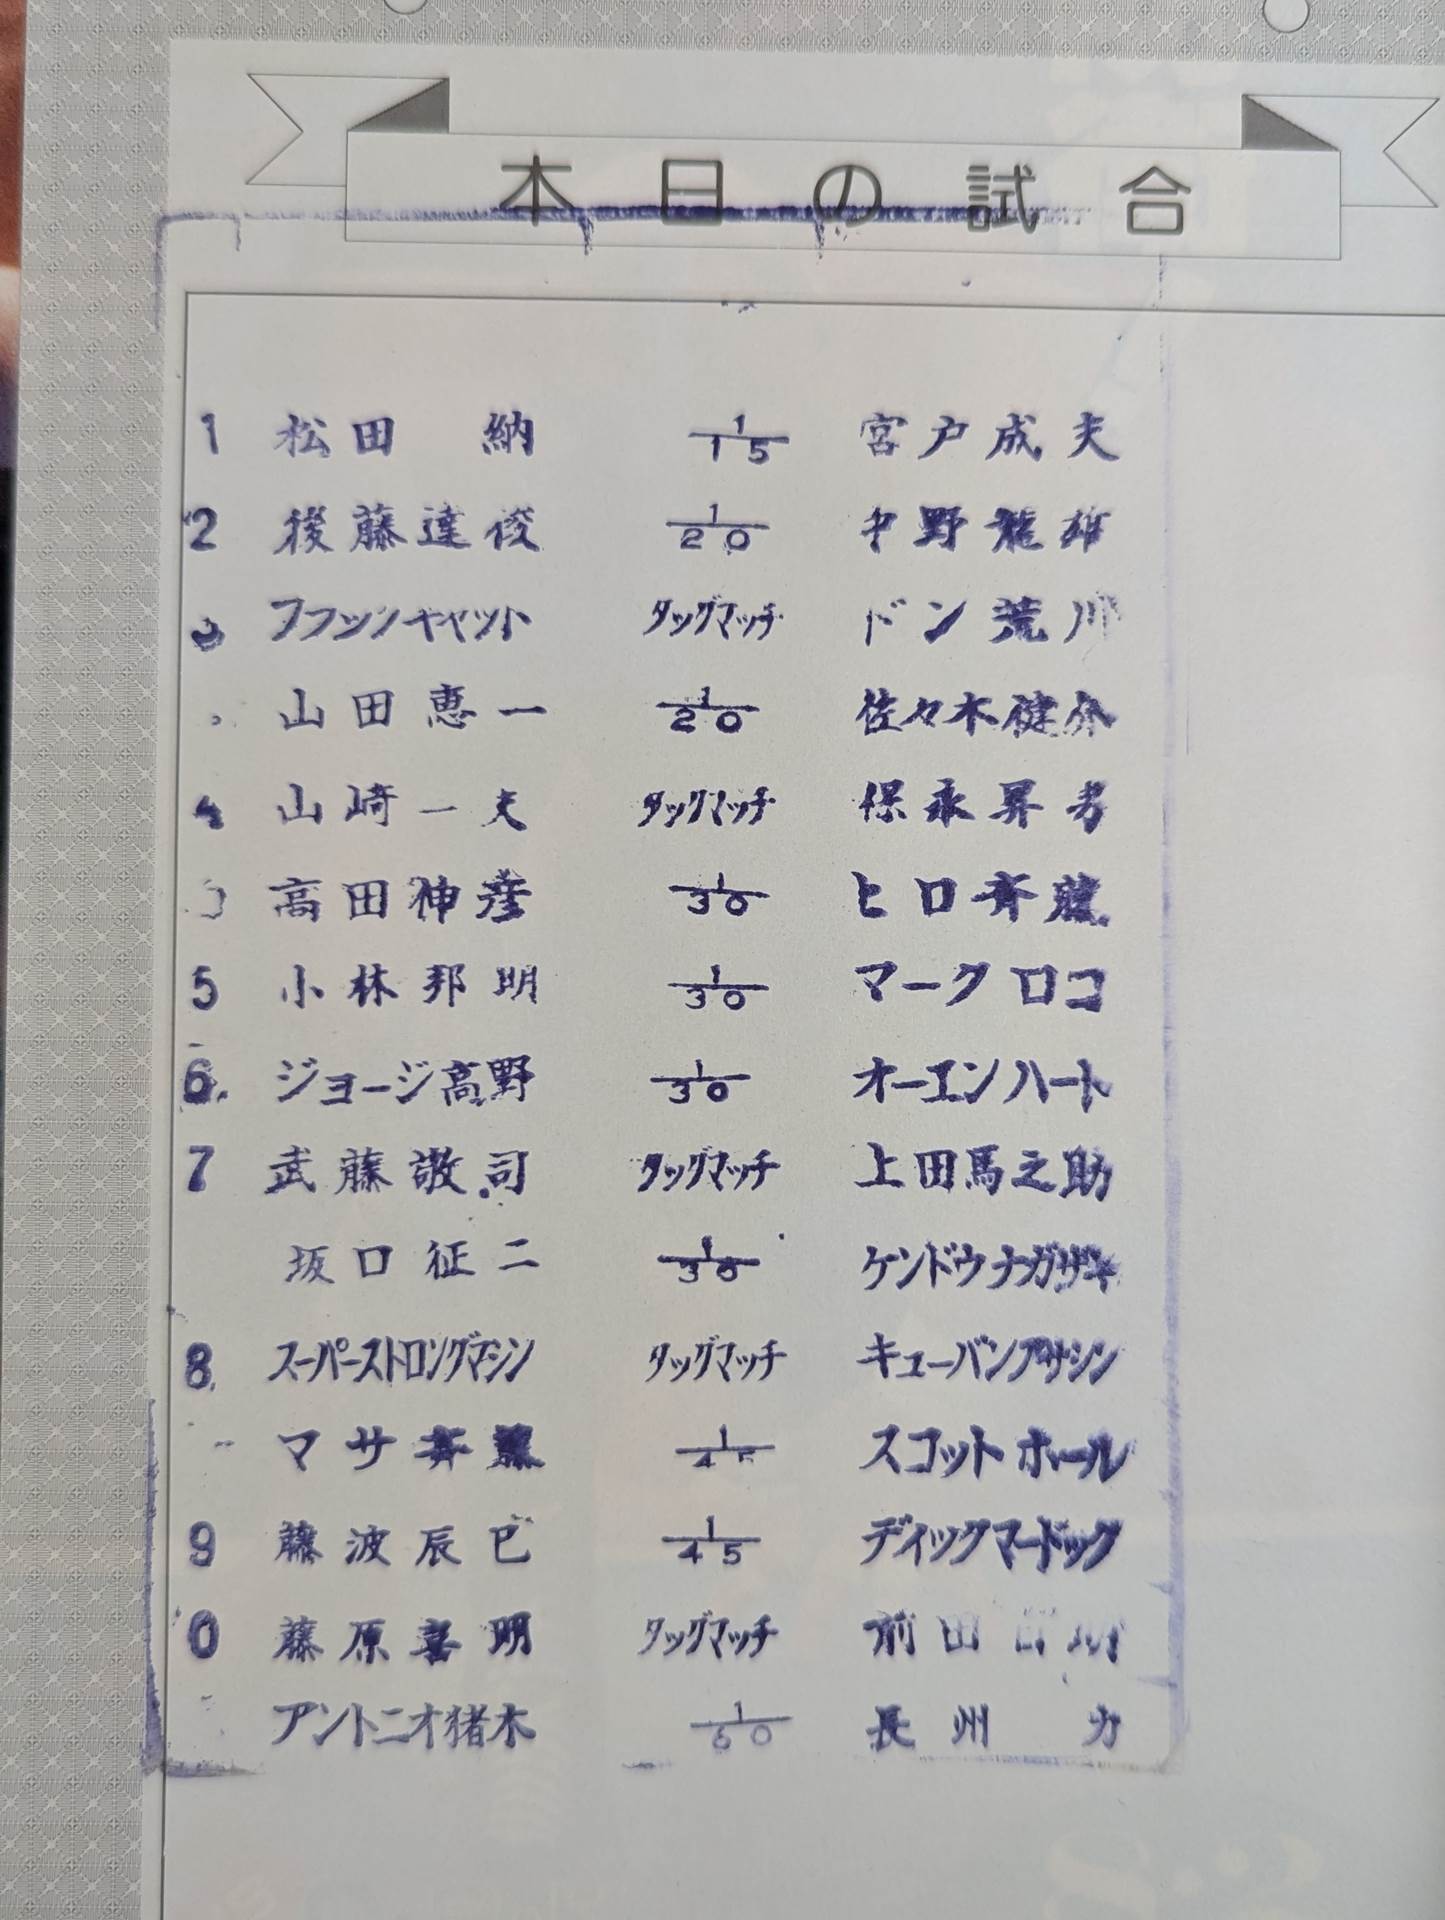 本日の試合
1 松田 納 1/15 宮戸成夫
2 後藤達俊 1/20 中野龍雄
3 ブラックキャット タッグマッチ ドン荒川
山田恵一 1/20 佐々木健介
4 山崎一夫 タッグマッチ 保永昇男
高田伸彦 1/30 ヒロ斉藤
5 小林邦明 1/30 マークロコ
6. ジョージ高野 1/30 オーエンハート
7 武藤敬司 タッグマッチ 上田馬之助
坂口征二 1/30 ケンドウナガサキ
8. スーパーストロングマシン タッグマッチ キューバンアサシン
マサ斉藤 1/45 スコットホール
9 藤波辰巳 1/45 ディックマードック
0 藤原喜明 タッグマッチ 前田日明
アントニオ猪木 1/60 長州 力